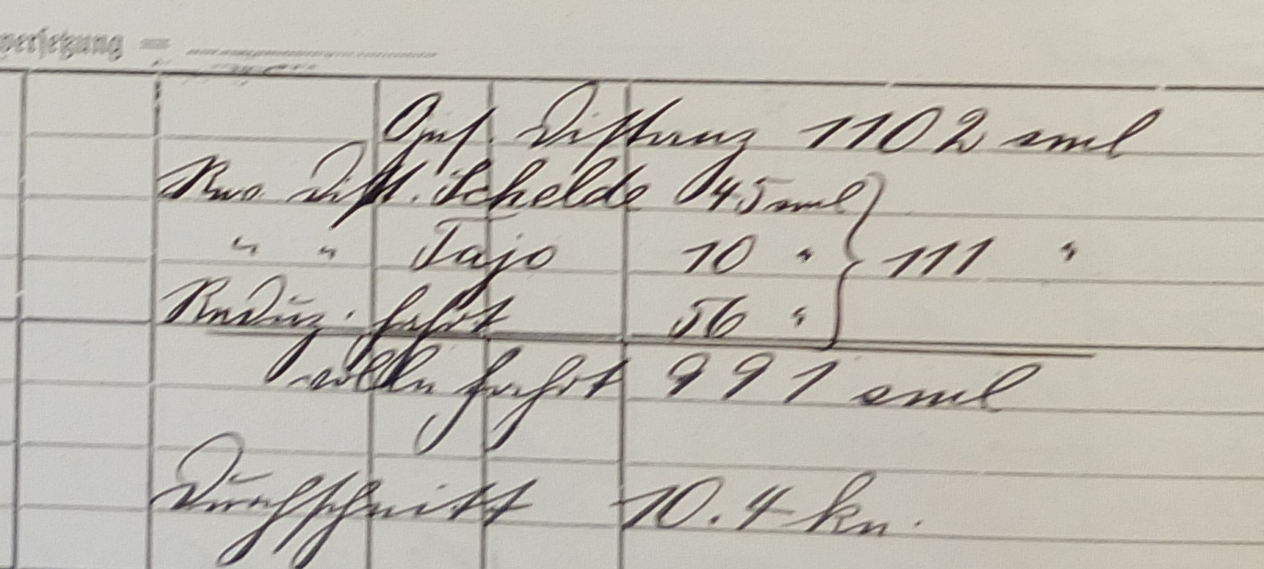 versetzung =
Ges. Distanz 1102 sml
Rev. Dist. Schelde 45 sml
" " Tajo 10 " } 111 "
Reduz. fahrt 56 "
volle fahrt 991 sml
Durchschnitt 10.4 kn.